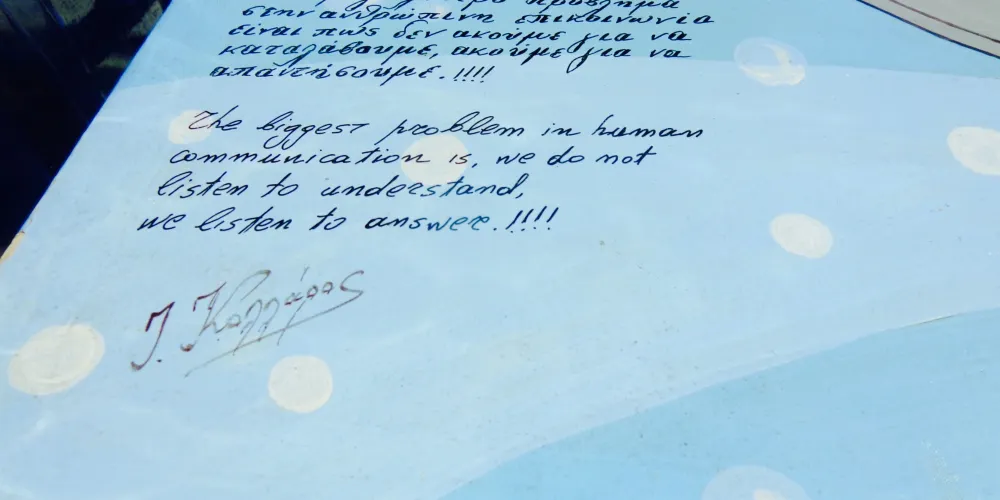 πρόβλημα
στην ανθρώπινη επικοινωνία
είναι πώς δεν ακούμε για να
καταλάβουμε, ακούμε για να
απαντήσουμε.!!!!
The biggest problem in human
communication is, we do not
listen to understand,
we listen to answer.!!!!